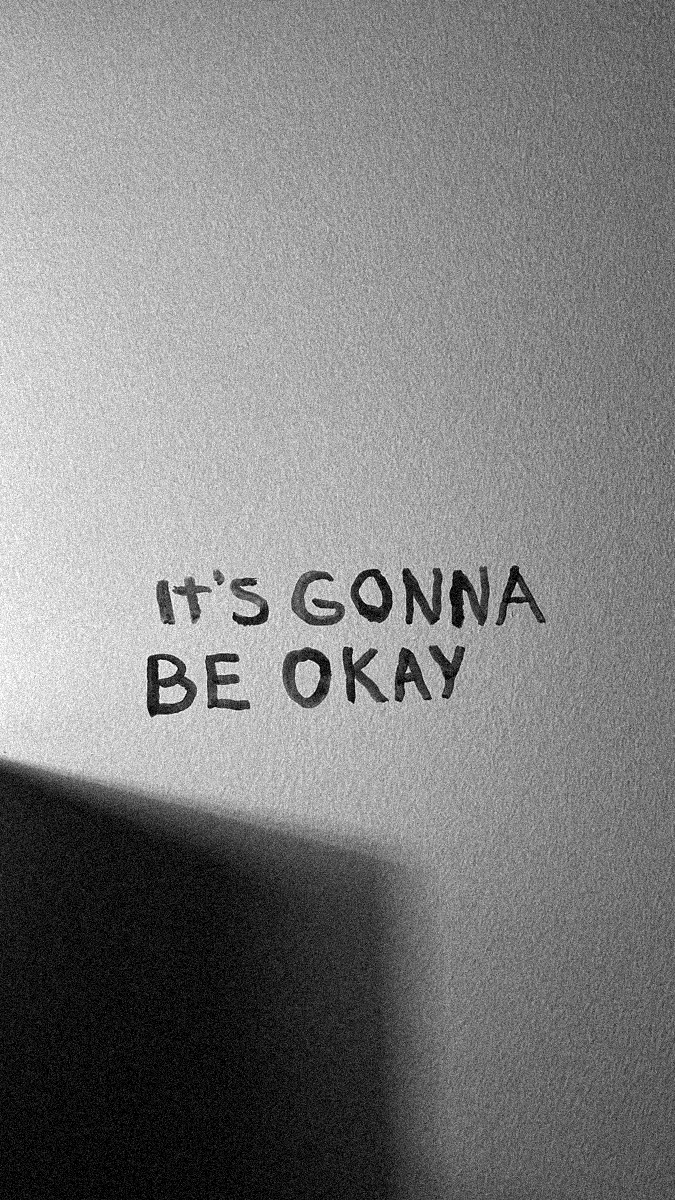 It's GONNA
BE OKAY